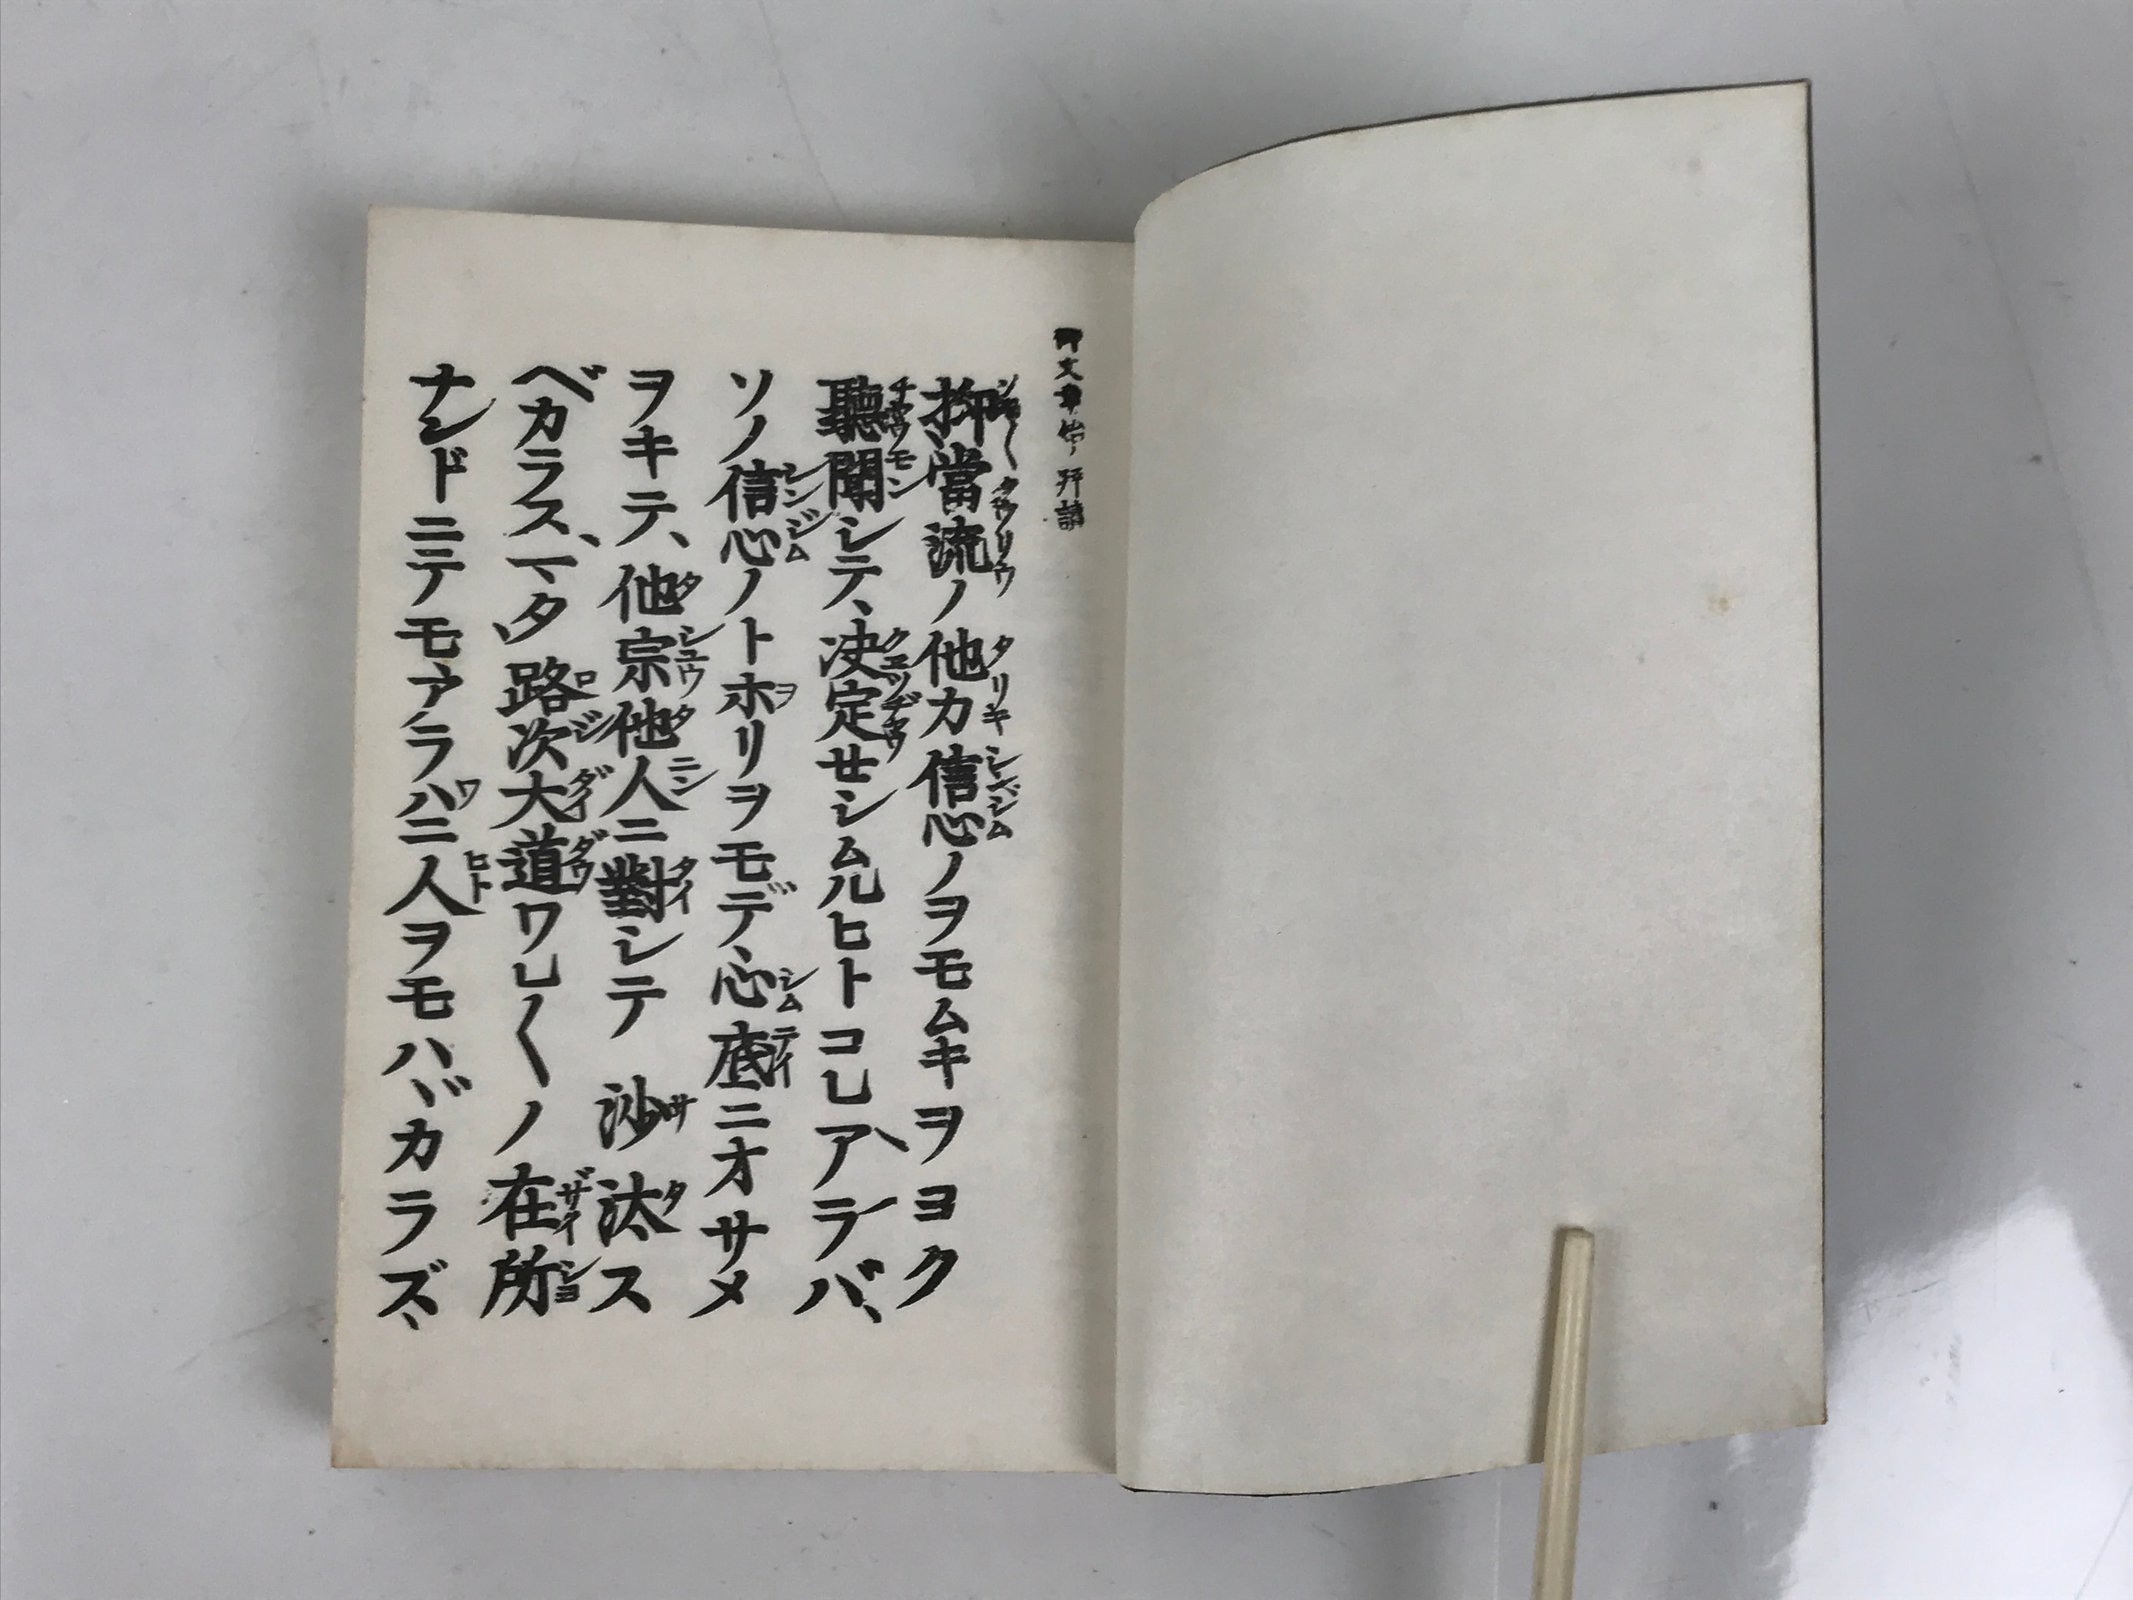 御文章 始ノ 拜讀
抑當流ノ他力信心ノヲモムキヲヨク
聽聞シテ、決定セシムルヒトコレアラバ、
ソノ信心ノトホリヲモデ、心底ニオサメ
ヲキテ、他宗他人ニ對シテ 沙汰ス
ベカラス、マタ路次大道ワレ〱ノ在所
ナンドニテモアラハニ人ヲモハヾカラズ、